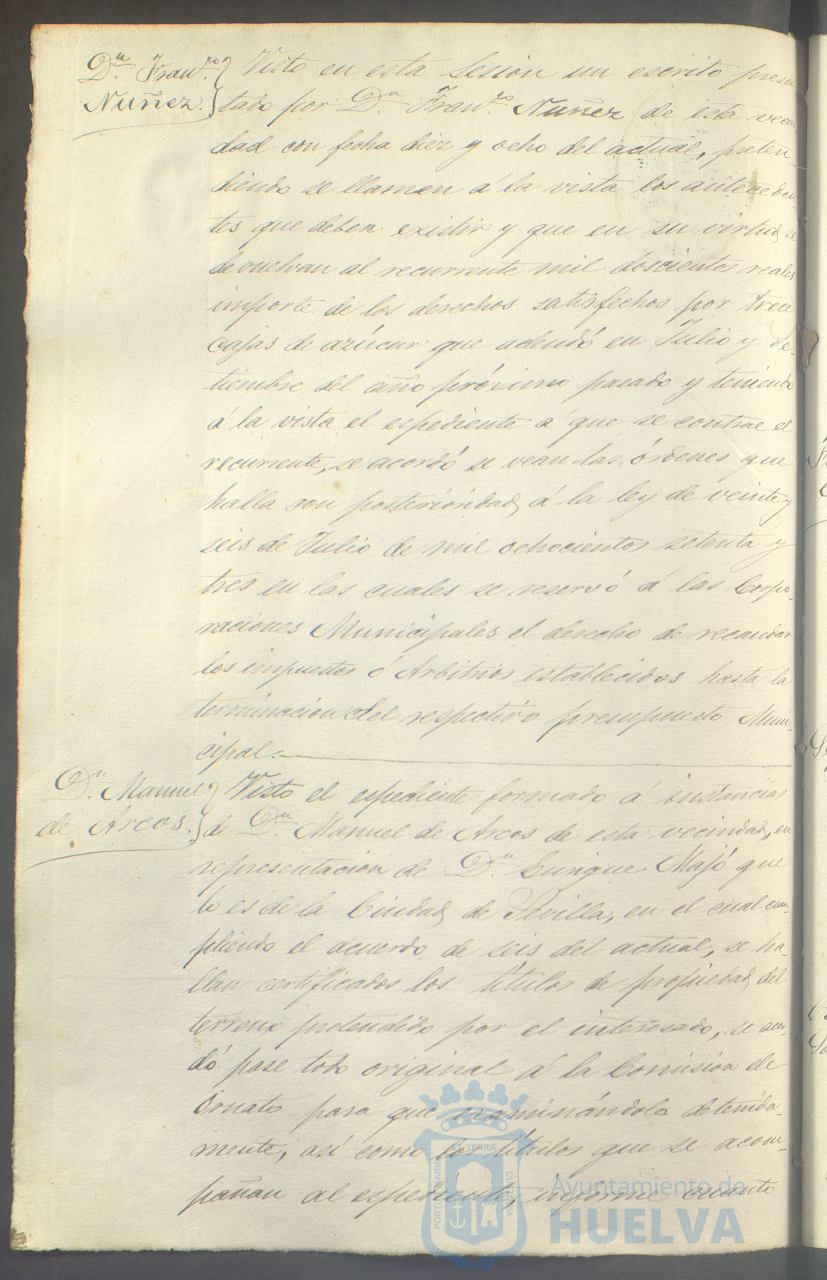 Dn. Franco. Nuñez.
Visto en esta Sesion un escrito presen
tado por Dn. Franco. Nuñez de esta vecin
dad con fecha diez y ocho del actual, preten-
diendo se llamen á la vista los anteceden
tes que deben existir y que en su virtud, se
devuelvan al recurrente mil doscientos reales
importe de los derechos satisfechos por trece
cajas de azúcar que adeudó en Julio y Se-
tiembre del año próximo pasado y teniendo
á la vista el espediente á que se contrae el
recurrente, se acordó se vean las órdenes que
halla con posterioridad á la ley de veinte y
seis de Julio de mil ochocientos setenta y
tres en las cuales se reservó á las Corpo-
raciones Municipales el derecho de recaudar
los impuestos ó Arbitrios establecidos hasta la
terminacion del respectivo presupuesto Muni-
cipal.
Dn. Manuel de Arcos.
Visto el espediente formado á instancias
de Dn. Manuel de Arcos de esta vecindad, en
representacion de Dn. Enrique Majó que
lo es de la Ciudad de Sevilla, en el cual cum-
pliendo el acuerdo de seis del actual, se ha-
llan certificados los títulos de propiedad del
terreno pretendido por el interesado, se acor-
dó pase todo original á la Comision de
Ornato para que examinándolo detenida-
mente, así como los títulos que se acom-
pañan al espediente, informe cuanto
PORTUS MARIS
ET TERRÆ
CUSTODIA
Ayuntamiento de
HUELVA